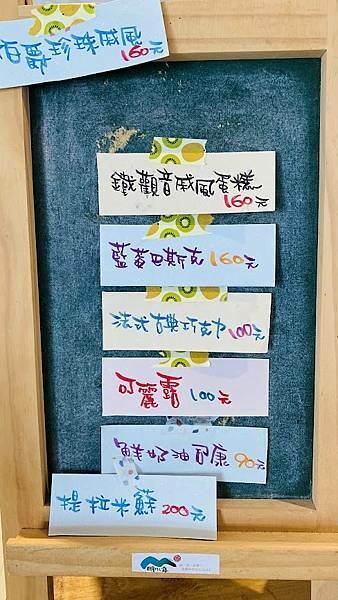 伯爵珍珠戚風160元
鐵觀音戚風蛋糕160元
藍莓巴斯克160元
法式古典巧克力100元
可麗露100元
鮮奶油司康90元
提拉米蘇200元